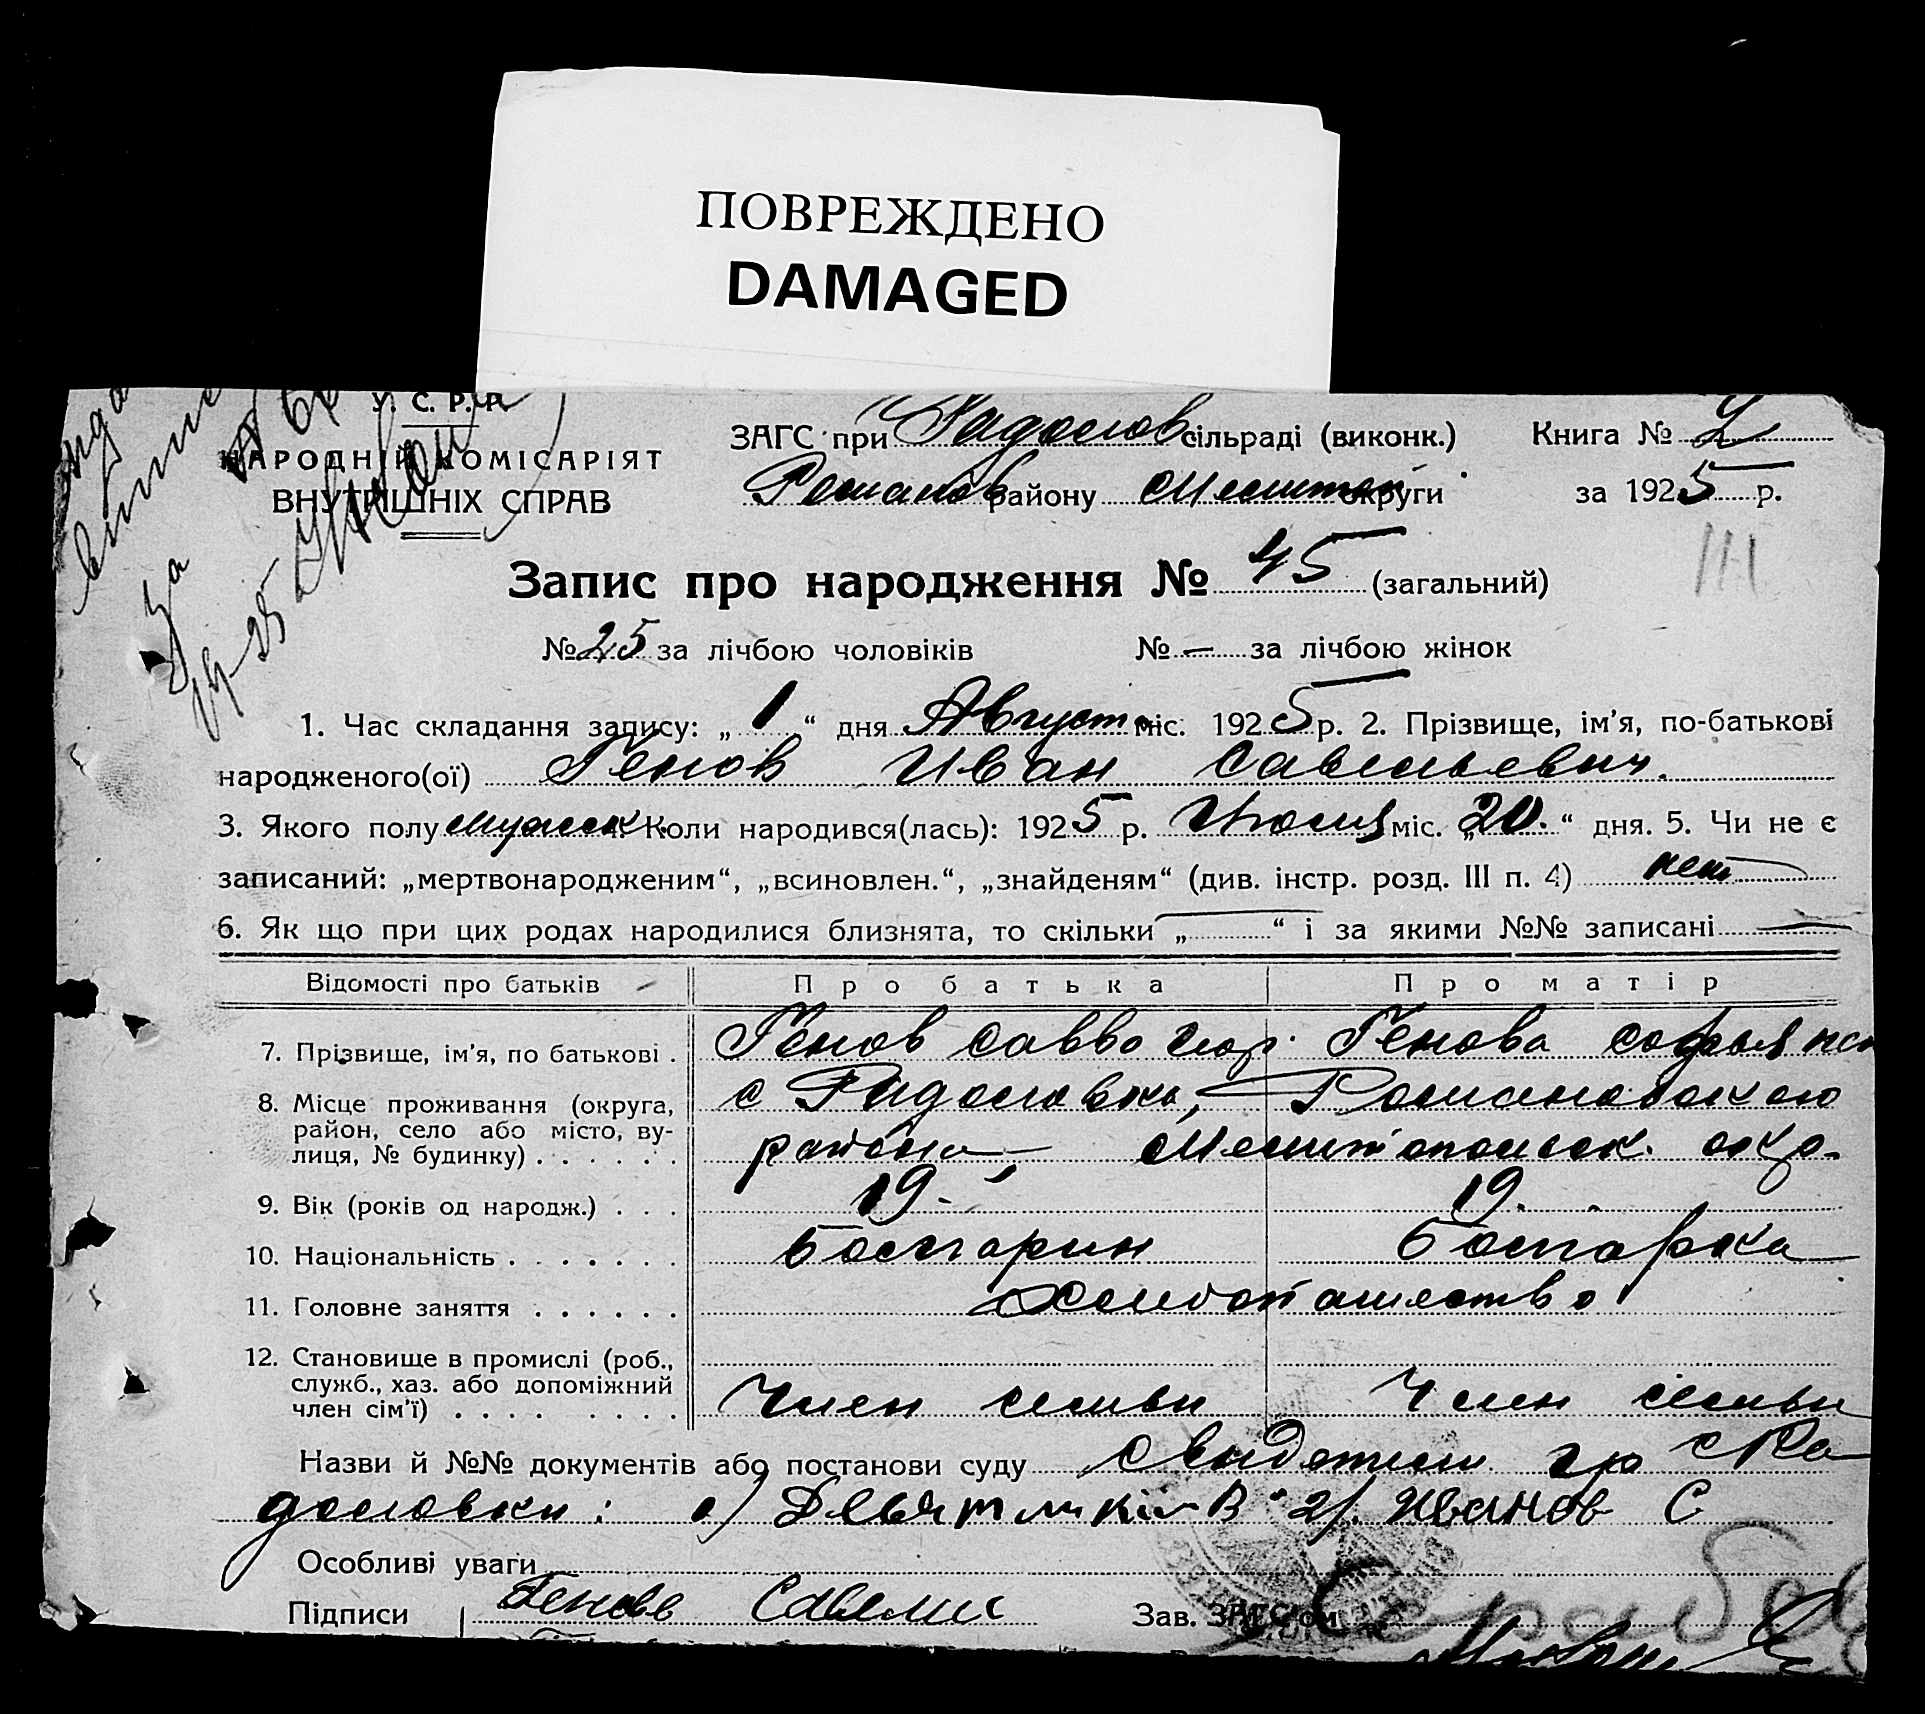 ПОВРЕЖДЕНО
DAMAGED
У. С. Р. Р.
НАРОДНІЙ КОМІСАРІЯТ
ВНУТРІШНІХ СПРАВ
ЗАГС при Радолов сільраді (виконк.) Книга № 2
Романов району Мелитоп округи за 1925 р.
Запис про народження № 45 (загальний)
№ 25 за лічбою чоловіків № — за лічбою жінок
1. Час складання запису: „ 1 “ дня Августа міс. 1925 р. 2. Прізвище, ім’я, по-батькові
народженого(ої) Генов Иван Савельевич.
3. Якого полу мужск. Коли народився(лась): 1925 р. Июля міс. „ 20. “ дня. 5. Чи не є
записаний: „мертвонародженим“, „всиновлен.“, „знайденям“ (див. інстр. розд. III п. 4) нет
6. Як що при цих родах народилися близнята, то скільки „ — “ і за якими №№ записані —
Відомості про батьків Про батька Про матір
7. Прізвище, ім’я, по батькові . Генов Савво Генова Софья
8. Місце проживання (округа, с Радоловка, Романовского
район, село або місто, ву-
лиця, № будинку) . . . . . . района, Мелитопольск. окр.
9. Вік (років од народж.) . . . 19. 19.
10. Національність . . . . . . . Болгарин Болгарка
11. Головне заняття . . . . . . Хлебопашество
12. Становище в промислі (роб.,
служб., хаз. або допоміжний
член сім’ї) . . . . . . . . Член семьи Член семьи
Назви й №№ документів або постанови суду Свидетели гр с Ра
доловки: 2/. Иванов С
Особливі уваги
Підписи Генов Савелис Зав. ЗАГС’ом